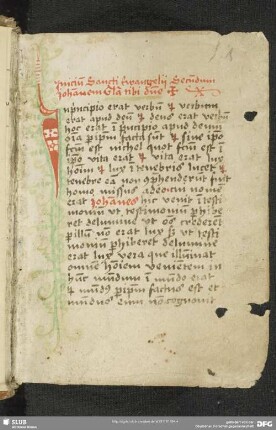 Iniciu Sancti Ewangelij Secundum
Johanem Gla tibi dne
In principio erat verbu & verbum
erat apud deu & deus erat verbu
hoc erat i principio apud deum
oia p ipm facta sut & sine ipo
fcm est nichel quot fcm est i
ipo vita erat & vita erat lux
hoim & lux i tenebris lucet &
tenebre ea no 9phenderut fuit
homo missus a deo cui nome
erat Johanes hic venit i testi
moniu ut testimoniu phibe
ret de lumine ut oes crederet
p illu no erat lux sz ut testi
moniu phiberet de lumine
erat lux vera que illuminat
omne hoiem veniete in
hunc mundum i mundo erat
& mud9 p ipm factus est et
mundus eum no cognouit
SLUB
DFG